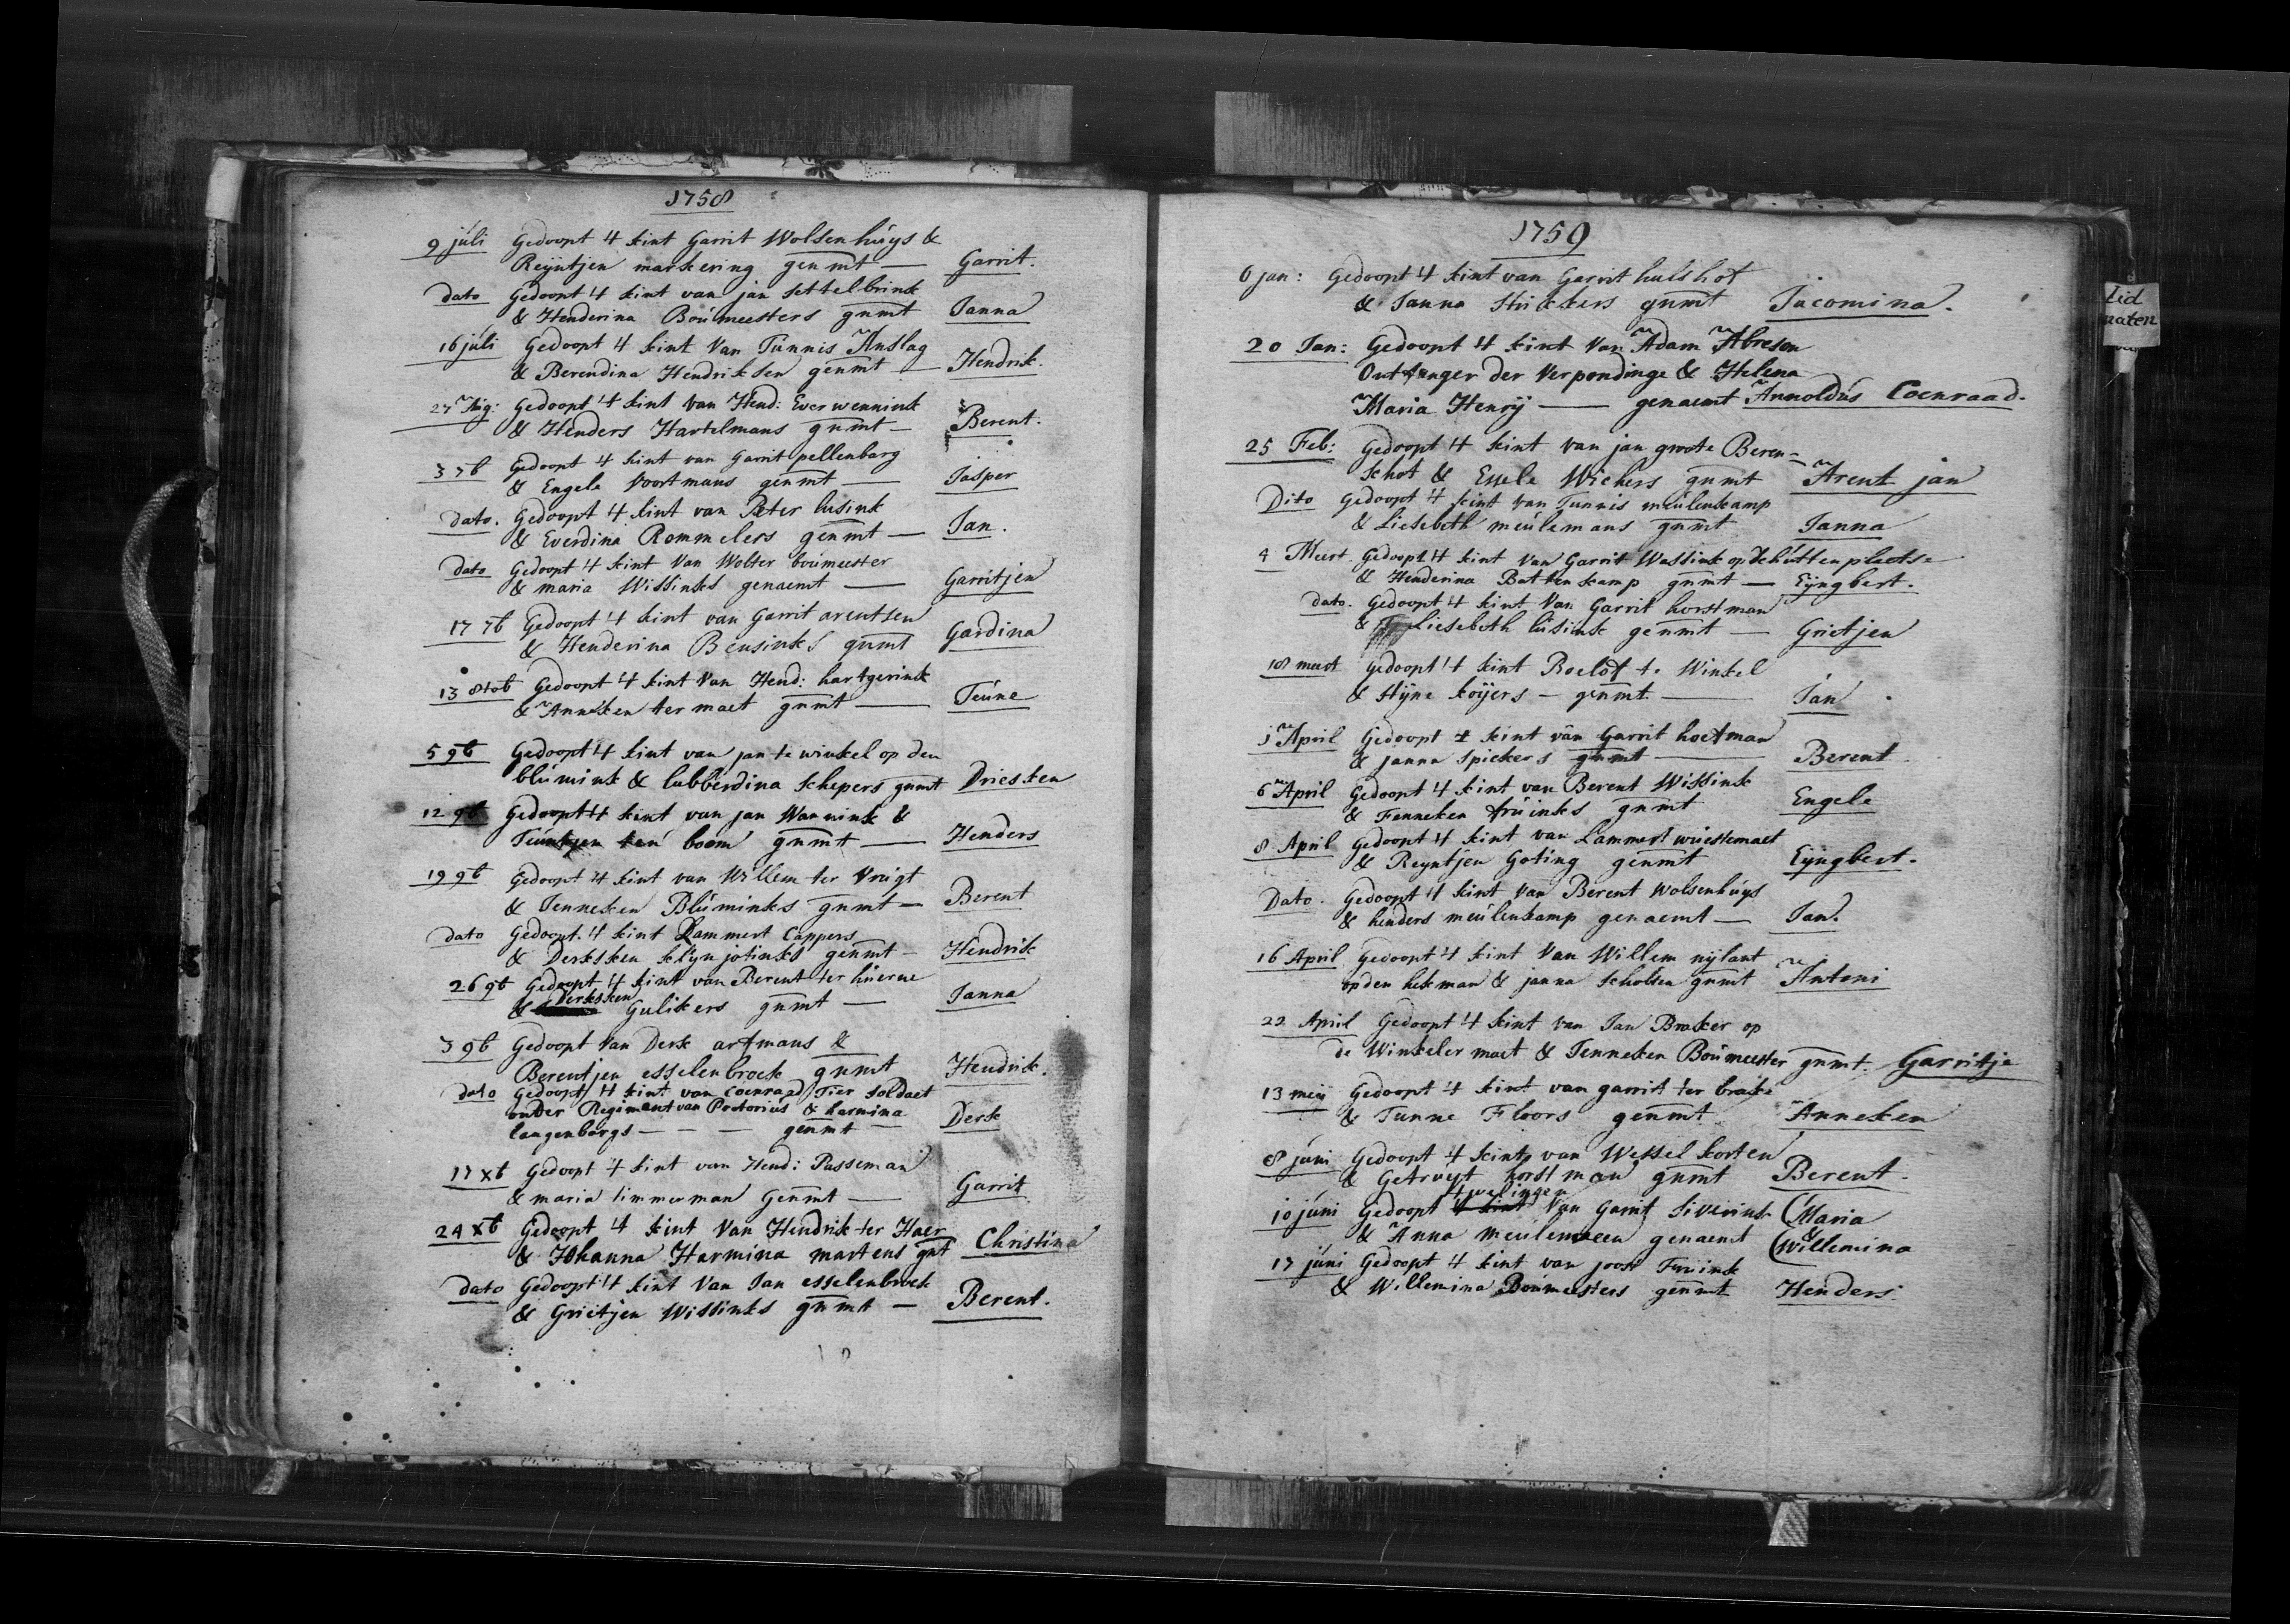 1758
9 júli Gedoopt 4 kint Garrit Wolsenhúys &
Reyntjen markering genmt — Garrit.
dato Gedoopt 4 kint van jan settelbrink
& Henderina Boúmeesters gnmt Janna
16 júli Gedoopt 4 kint Van Túnnis Anslag
& Berendina Hendriksen genmt — Hendrik.
27 Aúg: Gedoopt 4 kint van Hend: Everwennink
& Henders Hartelmans gnmt — Berent.
3 7b Gedoopt 4 kint van Garrit pellenbarg
& Engele Voortmans genmt — Jasper
dato. Gedoopt 4 kint van Peter lúsink
& Everdina Rommelers genmt — Jan.
dato Gedoopt 4 kint Van Wolter boúmeester
& maria Wissinks genaemt — Garritjen
17 7b Gedoopt 4 kint van Garrit arentsen
& Henderina Beusinks gnmt Gardina
13 8tob Gedoopt 4 kint Van Hend: hartgerink
& Anneken ter maet gnmt — Teúne
5 9b Gedoopt 4 kint van jan te winkel op den
blúmink & lubberdina Schepers gnmt Driesken
12 9b Gedoopt 4 kint van jan Wannink &
Teúntjen ten boom gnmt — Henders
19 9b Gedoopt 4 kint van Willem ter Vrúgt
& Jenneken Blúminks gnmt — Berent
dato Gedoopt 4 kint Lammert Cappers
& Derksken klijn jotinks genmt — Hendrik
26 9b Gedoopt 4 kint van Berent ter húerne
& Derksken Gulikers gnmt — Janna
3 9b Gedoopt Van Derk artmans &
Berentjen esselenbroek gnmt Hendrik.
dato Gedoopt 4 kint van Coenraad Tier Soldaet
onder Regiment van Pretorius & harmina
langenbargs — — — genmt — Derk
17 xb Gedoopt 4 kint van Hend: Passeman
& maria timmerman Genmt — Garrit
24 xb Gedoopt 4 kint Van Hendrik ter Haer
& Johanna Harmina martens gnt Christina
dato Gedoopt 4 kint Van Jan esselenbroek
& Grietjen Wissinks gnmt — Berent.
1759
6 jan: Gedoopt 4 kint van Garrit hulshof
& Janna Stúkkers gnmt Jacomina.
20 Jan: Gedoopt 4 kint Van Adam Abreson
Ontfanger der Verpondinge & Helena
Maria Henrÿ — genaemt Arnoldús Coenraad.
25 Feb: Gedoopt 4 kint van jan groote Beren-
schot & Essele Wichers gnmt Arent jan
Dito Gedoopt 4 kint van Tunnis meúlenkamp
& Liesebeth meúlemans gnmt Janna
4 Meert Gedoopt 4 kint Van Garrit Wassink op Schúttenplaets-
& Henderina Battenkamp gnmt — Eÿngbert.
dato. Gedoopt 4 kint Van Garrit horstman
& Liesebeth lúsink genmt — Grietjen
18 meert Gedoopt 4 kint Roelof te Winkel
& Stÿne koÿers — genmt. — Jan
1 April Gedoopt 4 kint van Garrit hoetman
& janna spiekers gnmt — Berent
6 April Gedoopt 4 kint van Berent Wissink
& Fenneken frúinks gnmt Engele
8 April Gedoopt 4 kint van Lammert wúestemaet
& Reyntjen Goting genmt Eÿngbert.
Dato. Gedoopt 4 kint Van Berent Wolsenhúys
& henders meúlenkamp genaemt — Jan.
16 April Gedoopt 4 kint Van Willem nÿlant
op den hekman & janna Scholten gnmt Antoni
22 April Gedoopt 4 kint van Jan Braker op
de Winkeler maet & Jenneken Boúmeester gnmt. Garritje
13 meij Gedoopt 4 kint van garrit ter brake
& Tunne Floors genmt. Anneken
8 júni Gedoopt 4 kint van Wessel korten
& Getruyt horstman gnmt Berent.
4 twelingen
10 júni Gedoopt 4 kint Van Garrit Siverink (Maria
& Anna meúleneen genaemt & (Willemina
17 júni Gedoopt 4 kint van joost Fruink
& Willemina Boúmeesters genmt Henders.
Lid
maten